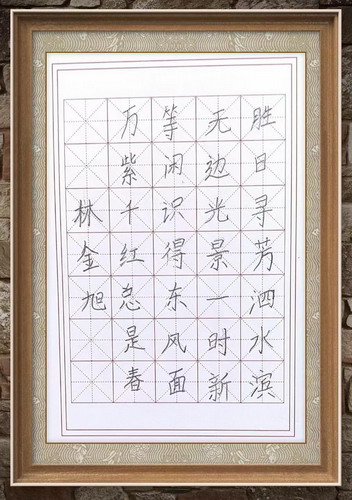 胜日寻芳泗水滨
无边光景一时新
等闲识得东风面
万紫千红总是春
林金旭